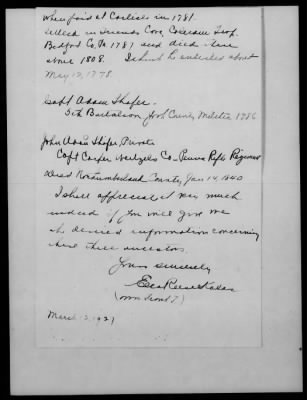 when paid at Carlisle in 1781.
Settled in Friends Cove, Colerain Twp.
Bedford Co. Pa 1787 and died there
about 1808. I think he enlisted about
May 12, 1778.
Capt Adam Shafer.
5th Battalion York County Militia 1786
John Adam Shafer, Private
Capt Casper Weitzels Co. Penna Rifle Regiment
Died Northumberland County, Jan 14, 1840
I shall appreciate it very much
indeed if you will give me
the desired information concerning
these three ancestors.
Yours sincerely
March 12, 1927